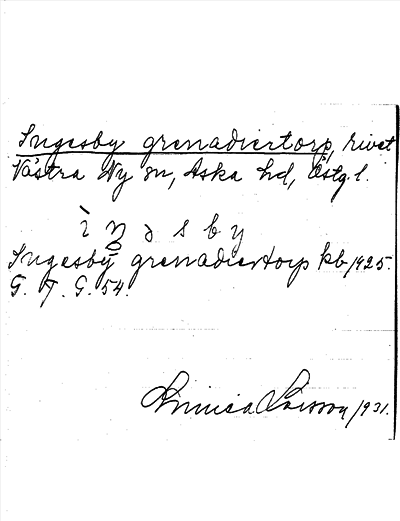 Ingesby grenadiertorp, rivet
Västra Ny sn, Aska hd, Östgl.
ì ŋ ə s b y
Ingesby grenadiertorp kb 1925.
G. T. G. 54.
Linnea Larsson 1931.